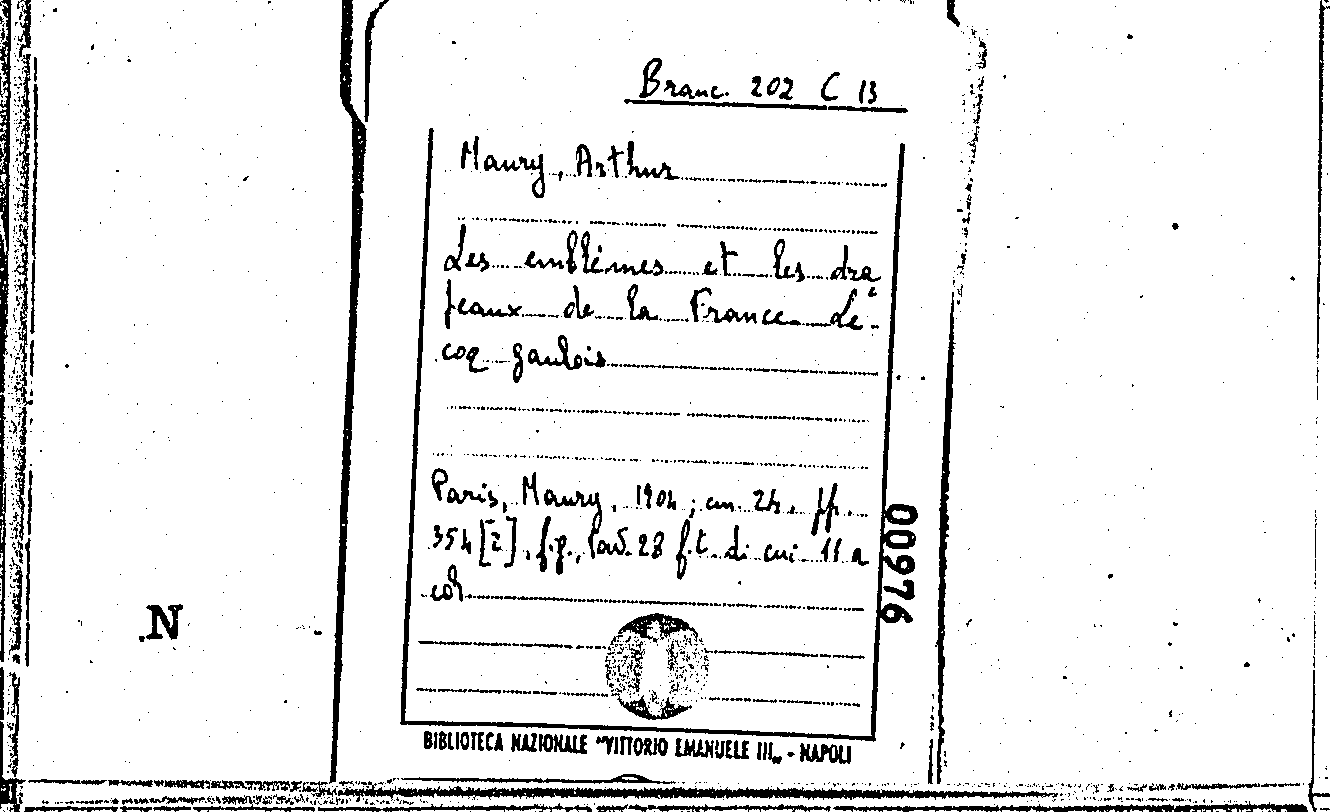 Branc. 202 C 13
Maury, Arthur
Les emblèmes et les dra
peaux de la France. Le
coq gaulois
Paris, Maury, 1904; cm. 24, pp.
354 [2], f.p., tav. 28 f.t. di cui 11 a
col.
00976
N
BIBLIOTECA NAZIONALE "VITTORIO EMANUELE III„ - NAPOLI